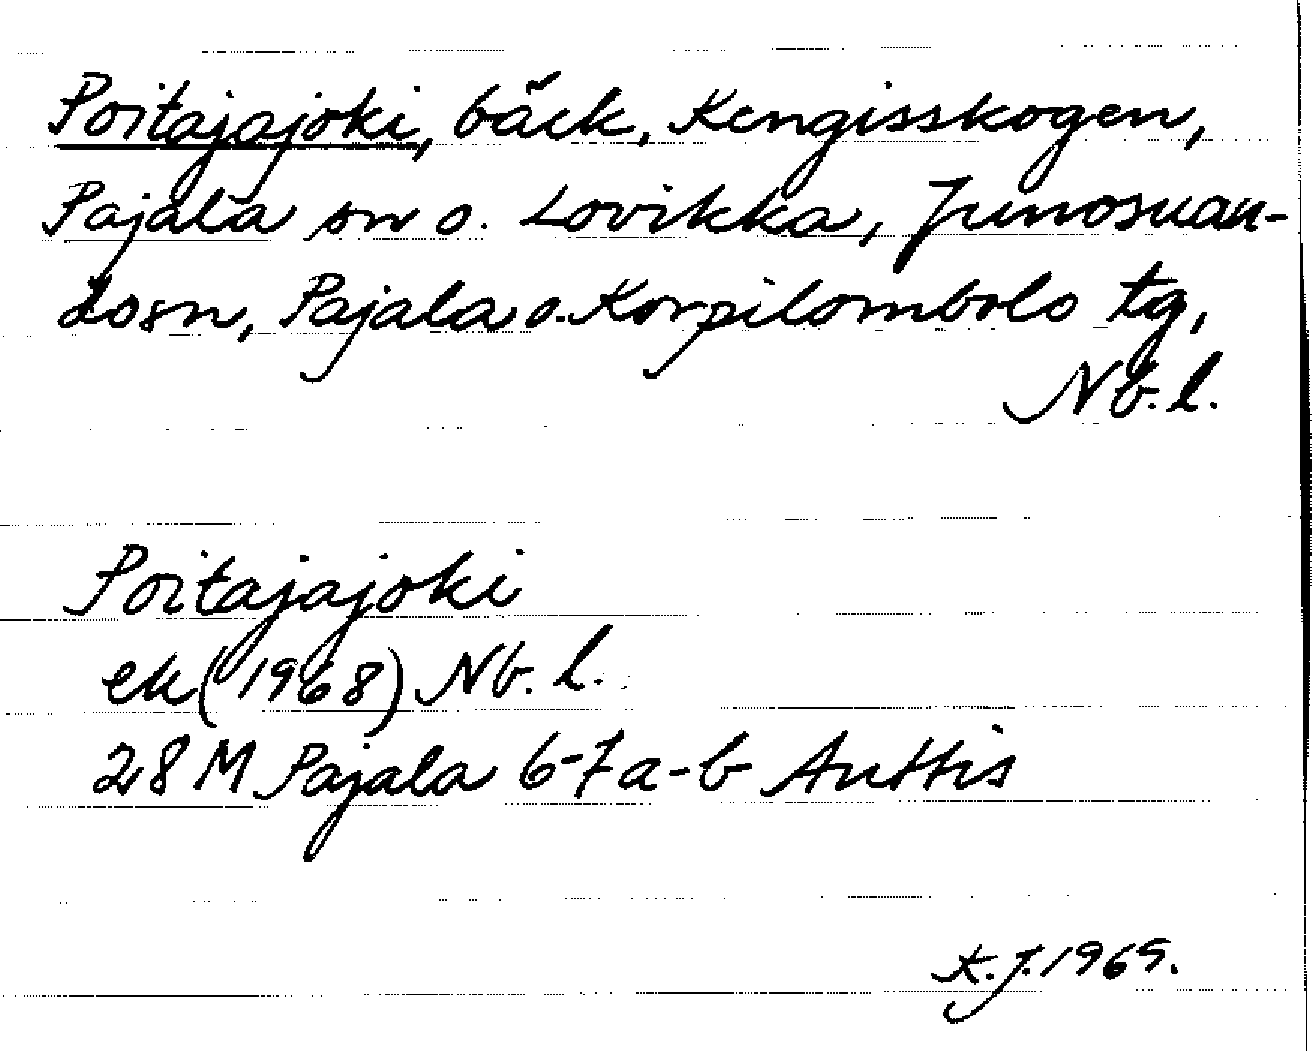 Poitajajoki, bäck, Kengisskogen,
Pajala sn o. Lovikka, Junosuan-
dosn, Pajala o. Korpilombolo tg,
Nb. l.
Poitajajoki
ek (1968) Nb. l.
28 M Pajala 6-7a-b Anttis
K. J. 1969.